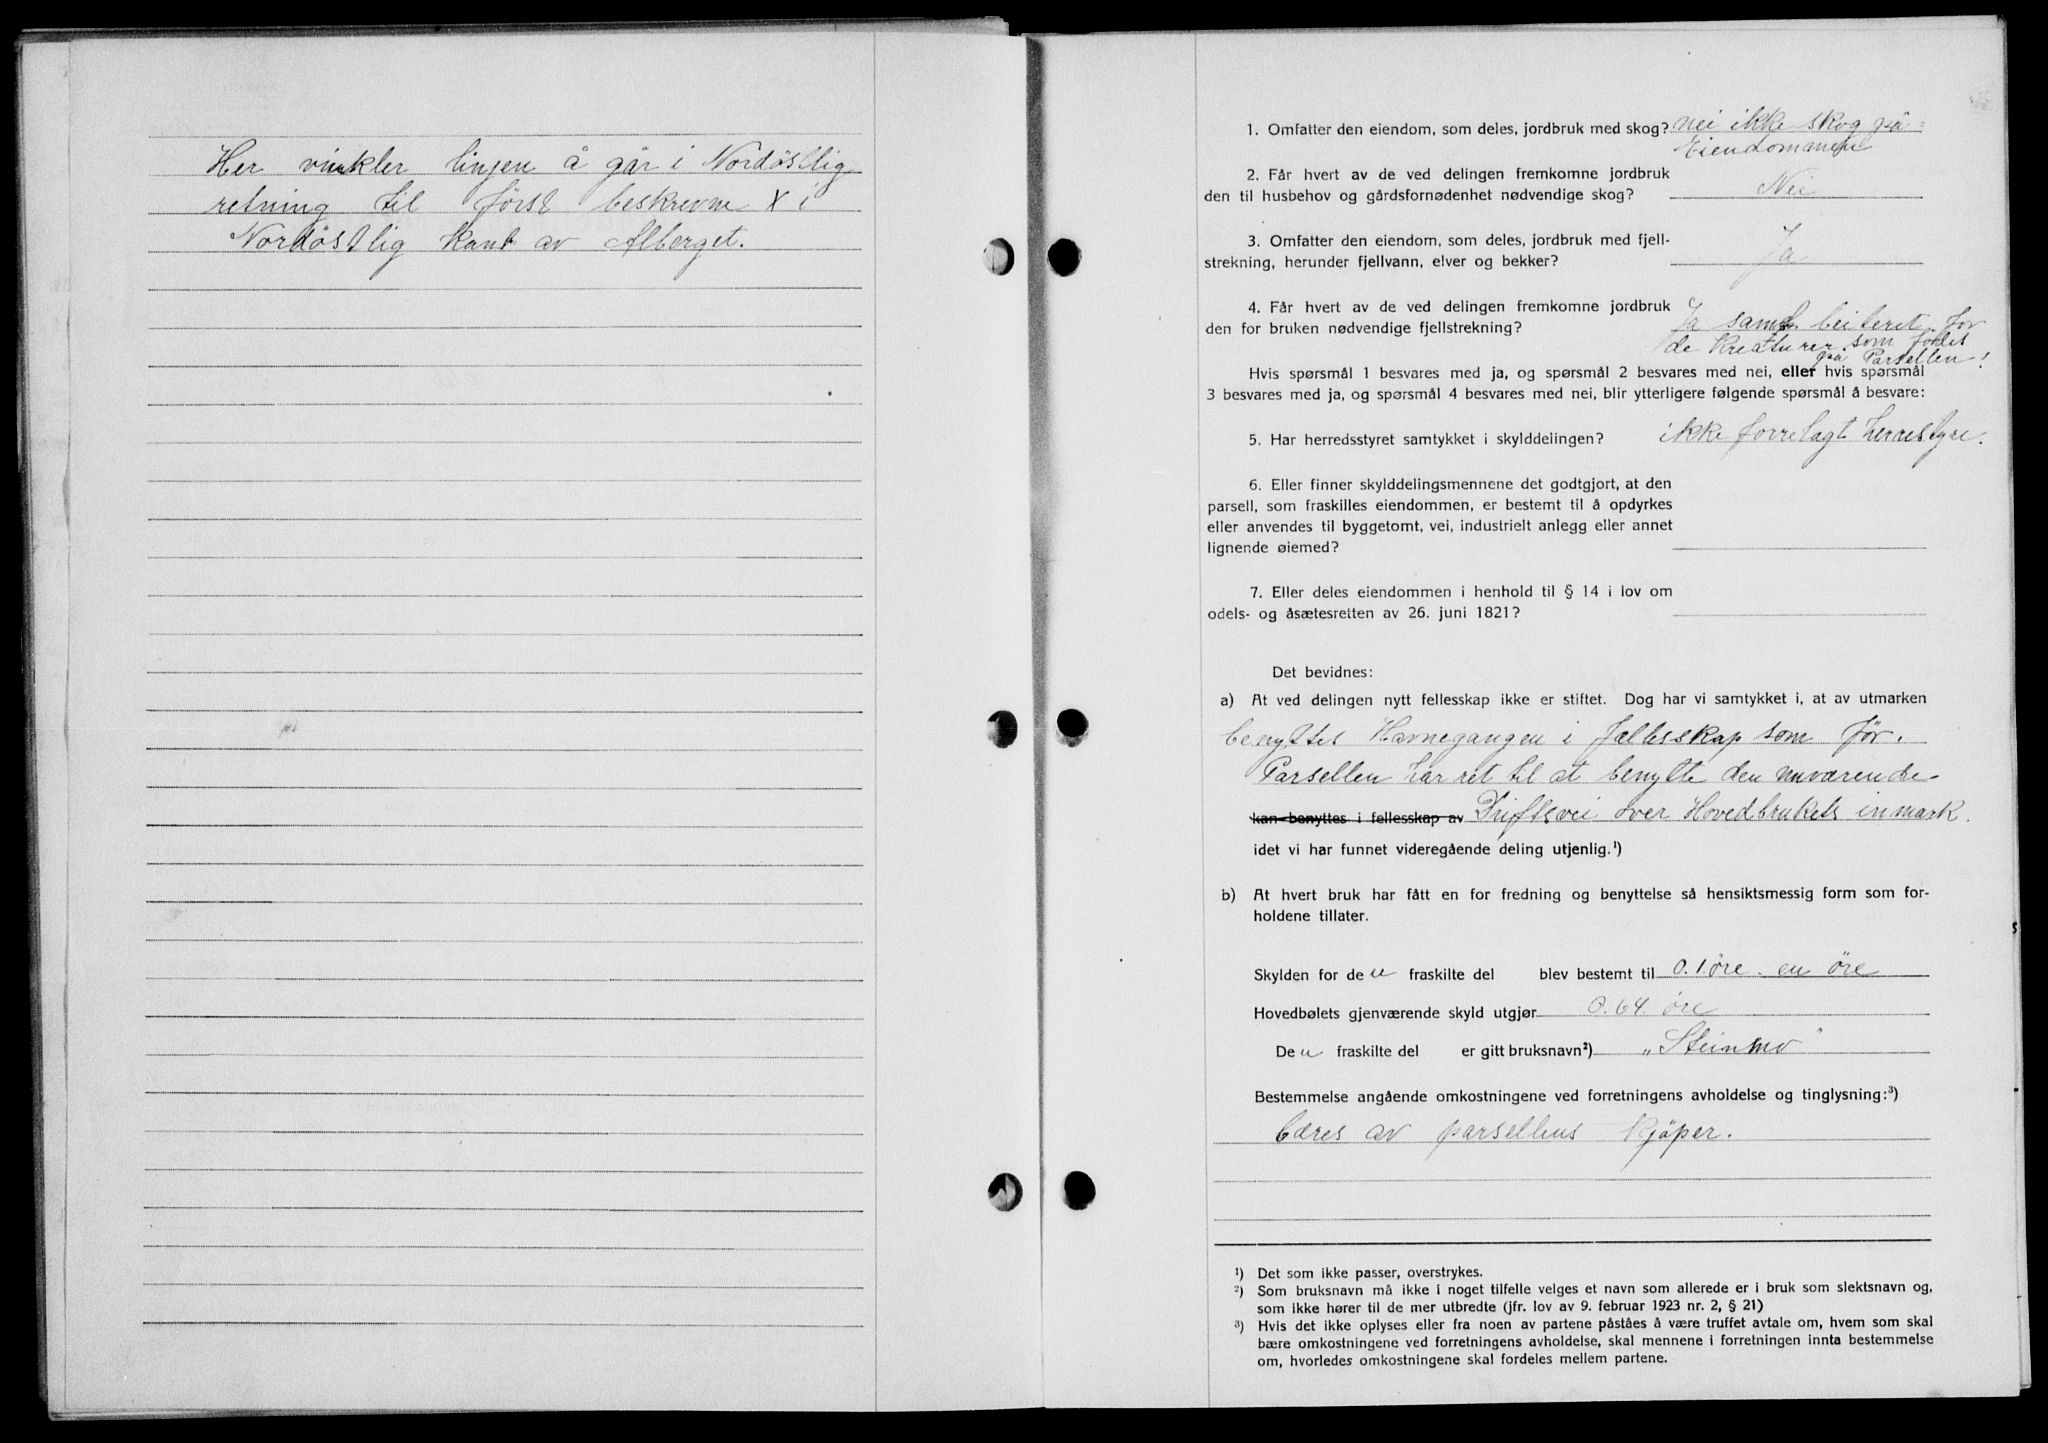 Her vinkler linjen å går i Nordöstlig
retning til först beskrevne X i
Nordöstlig kant av Alberget.
1. Omfatter den eiendom, som deles, jordbruk med skog? nei ikke skog på
Eiendomanen
2. Får hvert av de ved delingen fremkomne jordbruk
den til husbehov og gårdsfornødenhet nødvendige skog? Nei
3. Omfatter den eiendom, som deles, jordbruk med fjell-
strekning, herunder fjellvann, elver og bekker? Ja
4. Får hvert av de ved delingen fremkomne jordbruk
den for bruken nødvendige fjellstrekning? Ja samt beiteret for
de kreaturer som födes
på Parsellen!
Hvis spørsmål 1 besvares med ja, og spørsmål 2 besvares med nei, eller hvis spørsmål
3 besvares med ja, og spørsmål 4 besvares med nei, blir ytterligere følgende spørsmål å besvare:
5. Har herredsstyret samtykket i skylddelingen? ikke forrelagt herrestyre.
6. Eller finner skylddelingsmennene det godtgjort, at den
parsell, som fraskilles eiendommen, er bestemt til å opdyrkes
eller anvendes til byggetomt, vei, industrielt anlegg eller annet
lignende øiemed?
7. Eller deles eiendommen i henhold til § 14 i lov om
odels- og åsætesretten av 26. juni 1821?
Det bevidnes:
a) At ved delingen nytt fellesskap ikke er stiftet. Dog har vi samtykket i, at av utmarken
benyttes Havnegangen i fellesskap som för.
Parsellen har ret til at benytte den nuværende
kan benyttes i fellesskap av Driftsvei over Hovedbrukets inmark.
idet vi har funnet videregående deling utjenlig.¹)
b) At hvert bruk har fått en for fredning og benyttelse så hensiktsmessig form som for-
holdene tillater.
Skylden for den fraskilte del blev bestemt til 0.1 öre en öre
Hovedbølets gjenværende skyld utgjør 0.64 öre
Den fraskilte del er gitt bruksnavn²) „Steinmo"
Bestemmelse angående omkostningene ved forretningens avholdelse og tinglysning:³)
bæres av parsellens kjöper.
¹) Det som ikke passer, overstrykes.
²) Som bruksnavn må ikke i noget tilfelle velges et navn som allerede er i bruk som slektsnavn og,
som ikke hører til de mer utbredte (jfr. lov av 9. februar 1923 nr. 2, § 21)
³) Hvis det ikke oplyses eller fra noen av partene påståes å være truffet avtale om, hvem som skal
bære omkostningene ved forretningens avholdelse, skal mennene i forretningen innta bestemmelse
om, hvorledes omkostningene skal fordeles mellem partene.